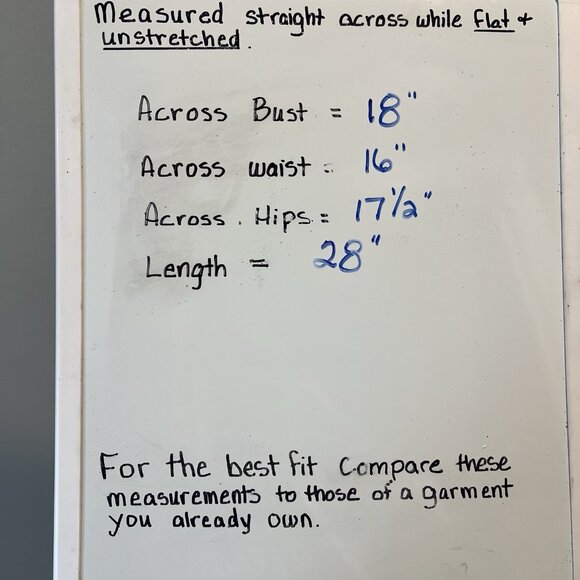 Measured straight across while flat +
unstretched.
Across Bust = 18"
Across waist = 16"
Across. Hips = 17 1/2"
Length = 28"
For the best fit Compare these
measurements to those of a garment
you already own.